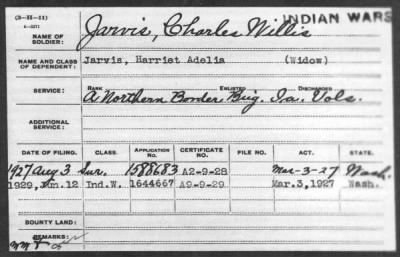 (3-H-11)
6-5071
INDIAN WARS
NAME OF SOLDIER:
Jarvis, Charles Willis
NAME AND CLASS OF DEPENDENT:
Jarvis, Harriet Adelia (Widow)
SERVICE:
RANK ENLISTED DISCHARGED
A Northern Border Brig. Ia. Vols.
ADDITIONAL SERVICE:
DATE OF FILING. CLASS. APPLICATION NO. CERTIFICATE NO. FILE NO. ACT. STATE.
1927 Aug 3 Sur. 1588683 A2-9-28 Mar-3-27 Wash.
1929, 12 Ind.W. 1644667 A9-9-29 Mar.3,1927 Wash.
BOUNTY LAND:
REMARKS: